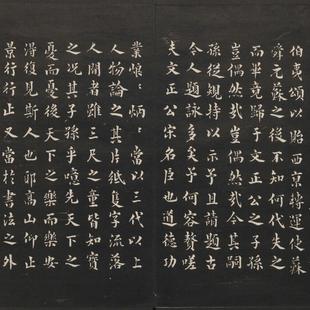 伯夷頌以貽西京轉運使蘇
舜元蘇之後不知何代失之
而畢竟歸于文正公之子孫
豈偶然哉豈偶然哉今其嗣
孫從規持以示予且請題古
今人題詠多矣予何容贅嗟
夫文正公宋名臣也道德功
業炳〻當以三代以上
人物論之其片紙隻字流落
人間者雖三尺之童皆知寶
之况其子孫乎噫先天下之
憂而憂後天下之樂而樂安
得復見斯人也耶高山仰止
景行行止又當於書法之外